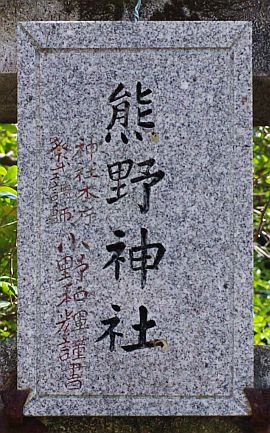 熊野神社
神社本庁
祭式講師
小野和輝謹書